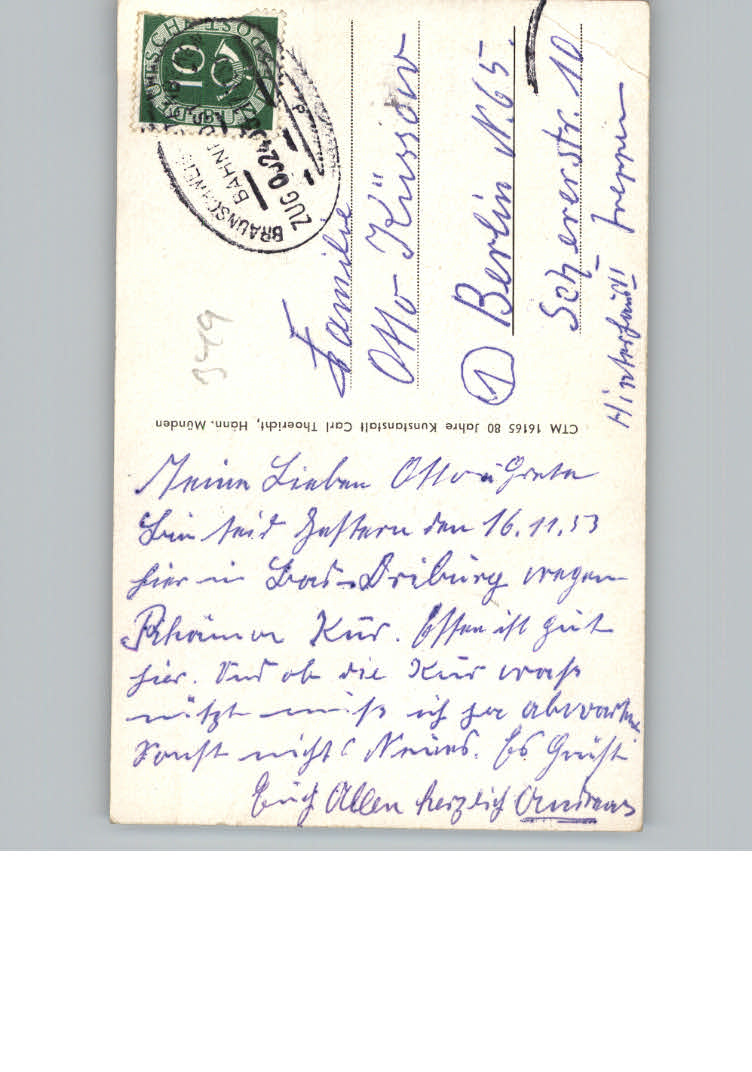 Meine Lieben Otto u Greta
bin seid Gestern den 16.11.53
hier in Bad-Driburg wegen
Rhäuma Kur. Essen ist gut
hier. Und ob die Kur waß
nützt muß ich ja abwarten
sonst nichts Neues. Es Grüßt
Euch Allen herzlich Andreas
CTM 16165 80 Jahre Kunstanstalt Carl Thoericht, Hann. Münden
Familie
Otto Küssow
① Berlin N. 65.
Schererstr. 10
Hinterhaus II Treppen
349
DEUTSCHE POST
10
BRAUNSCHWEIG
BAHNPOST
ZUG